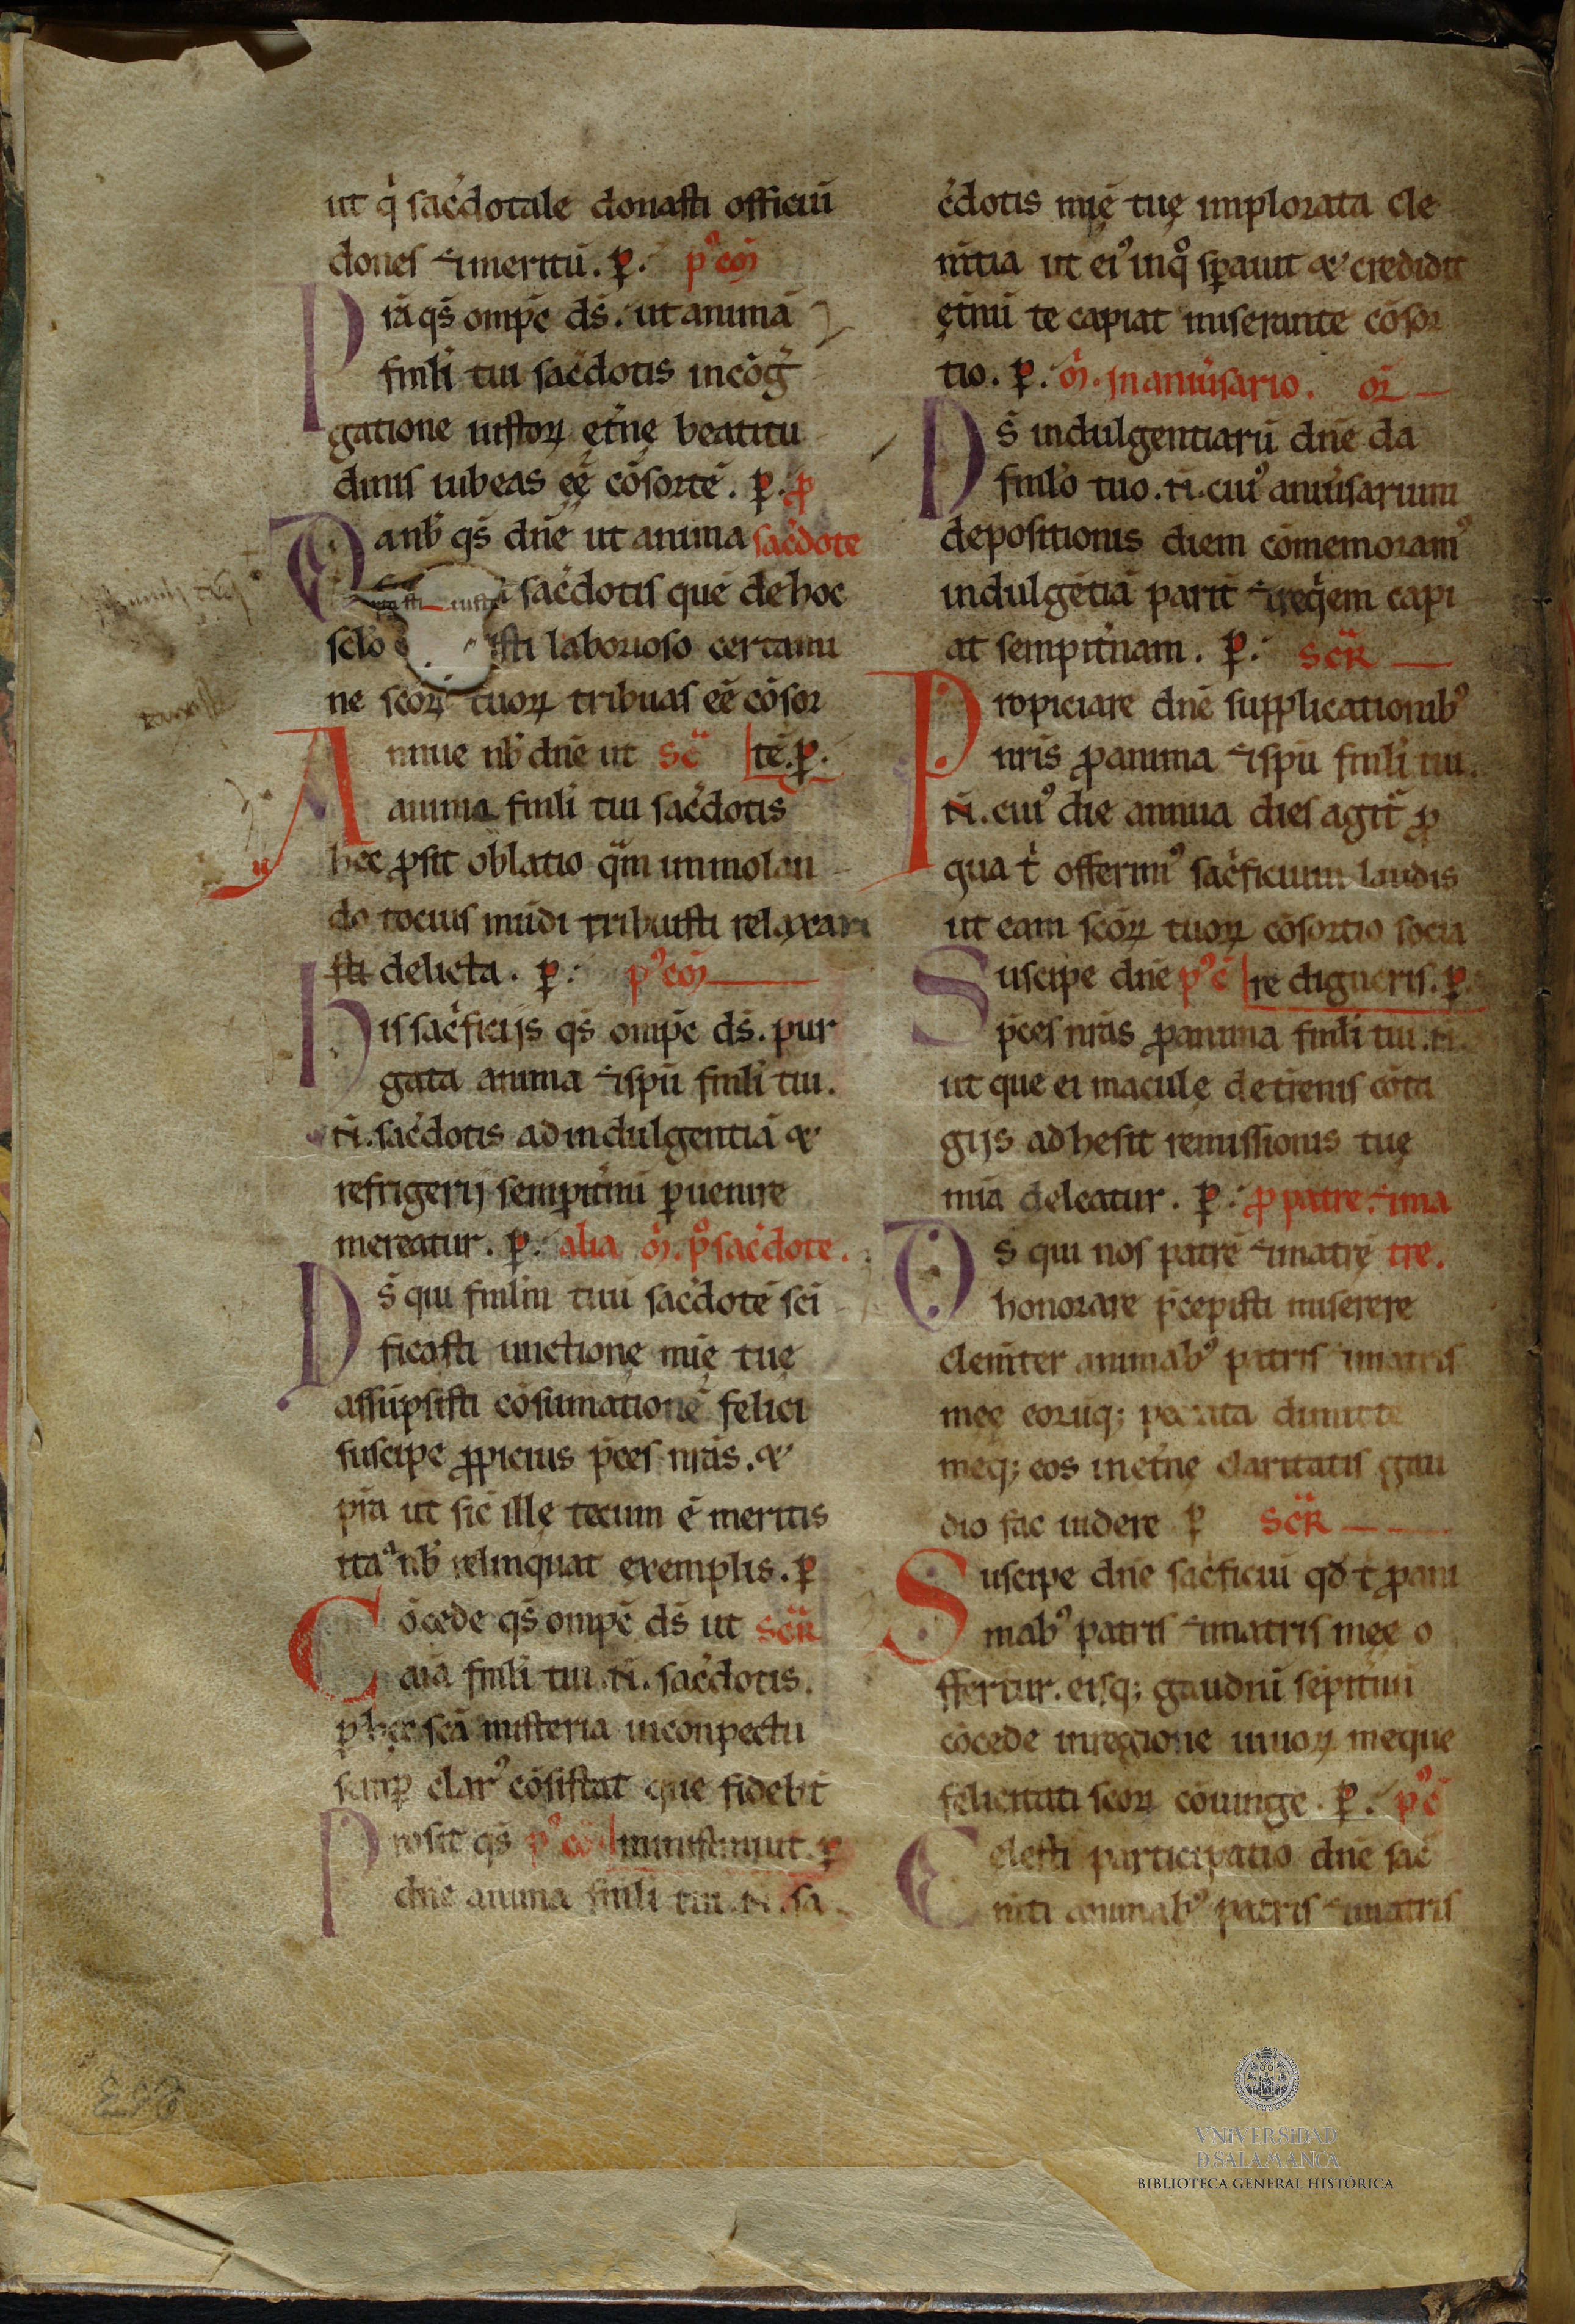 ut q̓ sac̓dotale donasti officiū
dones ⁊ meritū. p̲. p'cō
Pr̄a qs̄ omp̄c ds̄. ut animā
fm̄li tui sac̓dotis in cōg̓
gatione iustoꝝ et̓nę beatitu
dinis iubeas eē cōsortē. p̲. ꝓ
Da nb̄ qs̄ dn̄e ut anima sac̓dote
sac̓dotis quē de hoc
sclō isti laborioso certami
ne scōꝝ tuoꝝ tribuas eē cōsor
Annue nb̄ dn̄e ut sc̄ tē. p̲.
anima fm̄li tui sac̓dotis
hec ꝓsit oblatio qm̄ immolan
do tocius mūdi tribuisti relaxari
sti delicta. p̲. p'cō
His sac̓ficijs qs̄ omp̄c ds̄. pur
gata anima ⁊ sp̄u fm̄li tui.
.N. sac̓dotis ad indulgentiā &
refrigerij sempit̓ni puenire
mereatur. p̲. alia ō. p̲ sac̓dote.
Ds̄ qui fm̄lm̄ tuū sac̓dotē sc̄i
ficasti unctionę mīę tuę
assūpsisti cōsumationē felici
suscipe ꝓpicius p̄ces nr̄as. &
pr̄a ut sic̄ illę tecum ē meritis
ita nb̄ relinquat exemplis. p̲
Cōcede qs̄ omp̄c ds̄ ut scR̄
aīa fm̄li tui .N. sac̓dotis.
p̲ hęc sc̄a misteria in conpectu
semp̲ clar' cōsistat que fidelit̄
Prosit qs̄ p'cō ministrauit. p̲
dn̄e anima fm̄li tui .N. sa
c̓dotis mīę tuę implorata cle
m̄tia ut ei' inq̊ sp̲auit & credidit
et̓nū te capiat miserante cōsor
tio. p̲. ō. In aniu̓sario. or̄
Ds̄ indulgentiarū dn̄e da
fm̄lo tuo .N. cui' aniu̓sarium
depositionis diem cōmemoram'
indulgētiā parit̄ ⁊ req̓em capi
at sempit̓nam. p̲. scR̄
Propiciare dn̄e supplicationib'
nr̄is ꝓ anima ⁊ sp̄u fm̄li tui.
.N. cui' die annua dies agit̄ ꝓ
qua t̓ offerim' sac̓ficium laudis
ut eam scōꝝ tuoꝝ cōsortio socia
Suscipe dn̄e p'c̄ re digneris. p̲.
p̄ces nr̄as ꝓ anima fm̄li tui .N.
ut que ei maculę de t̓renis cōta
gijs adhesit remissionis tuę
mīa deleatur. p̲. ꝓ patre. ⁊ ma
Ds̄ qui nos patrē ⁊ matrę tre.
honorare p̄cepisti miserere
clem̄ter animab' patris ⁊ matris
meę eorūq; peccata dimitte
meq; eos in et̓nę claritatis gau
dio fac uidere p̲ scR̄
Suscipe dn̄e sac̓ficiū qd̄ t̓ ꝓ ani
mab' patris ⁊ matris meę o
ffertur. eisq; gaudiū sēpit̓nū
cōcede in regione uiuoꝝ meque
felicitati scōꝝ cōiunge. p̲. p'c̄
Celesti participatio dn̄e sac̄
m̄ti animab' patris ⁊ matris
VNiVERSiDAD
D SALAMANCA
BIBLIOTECA GENERAL HISTÓRICA